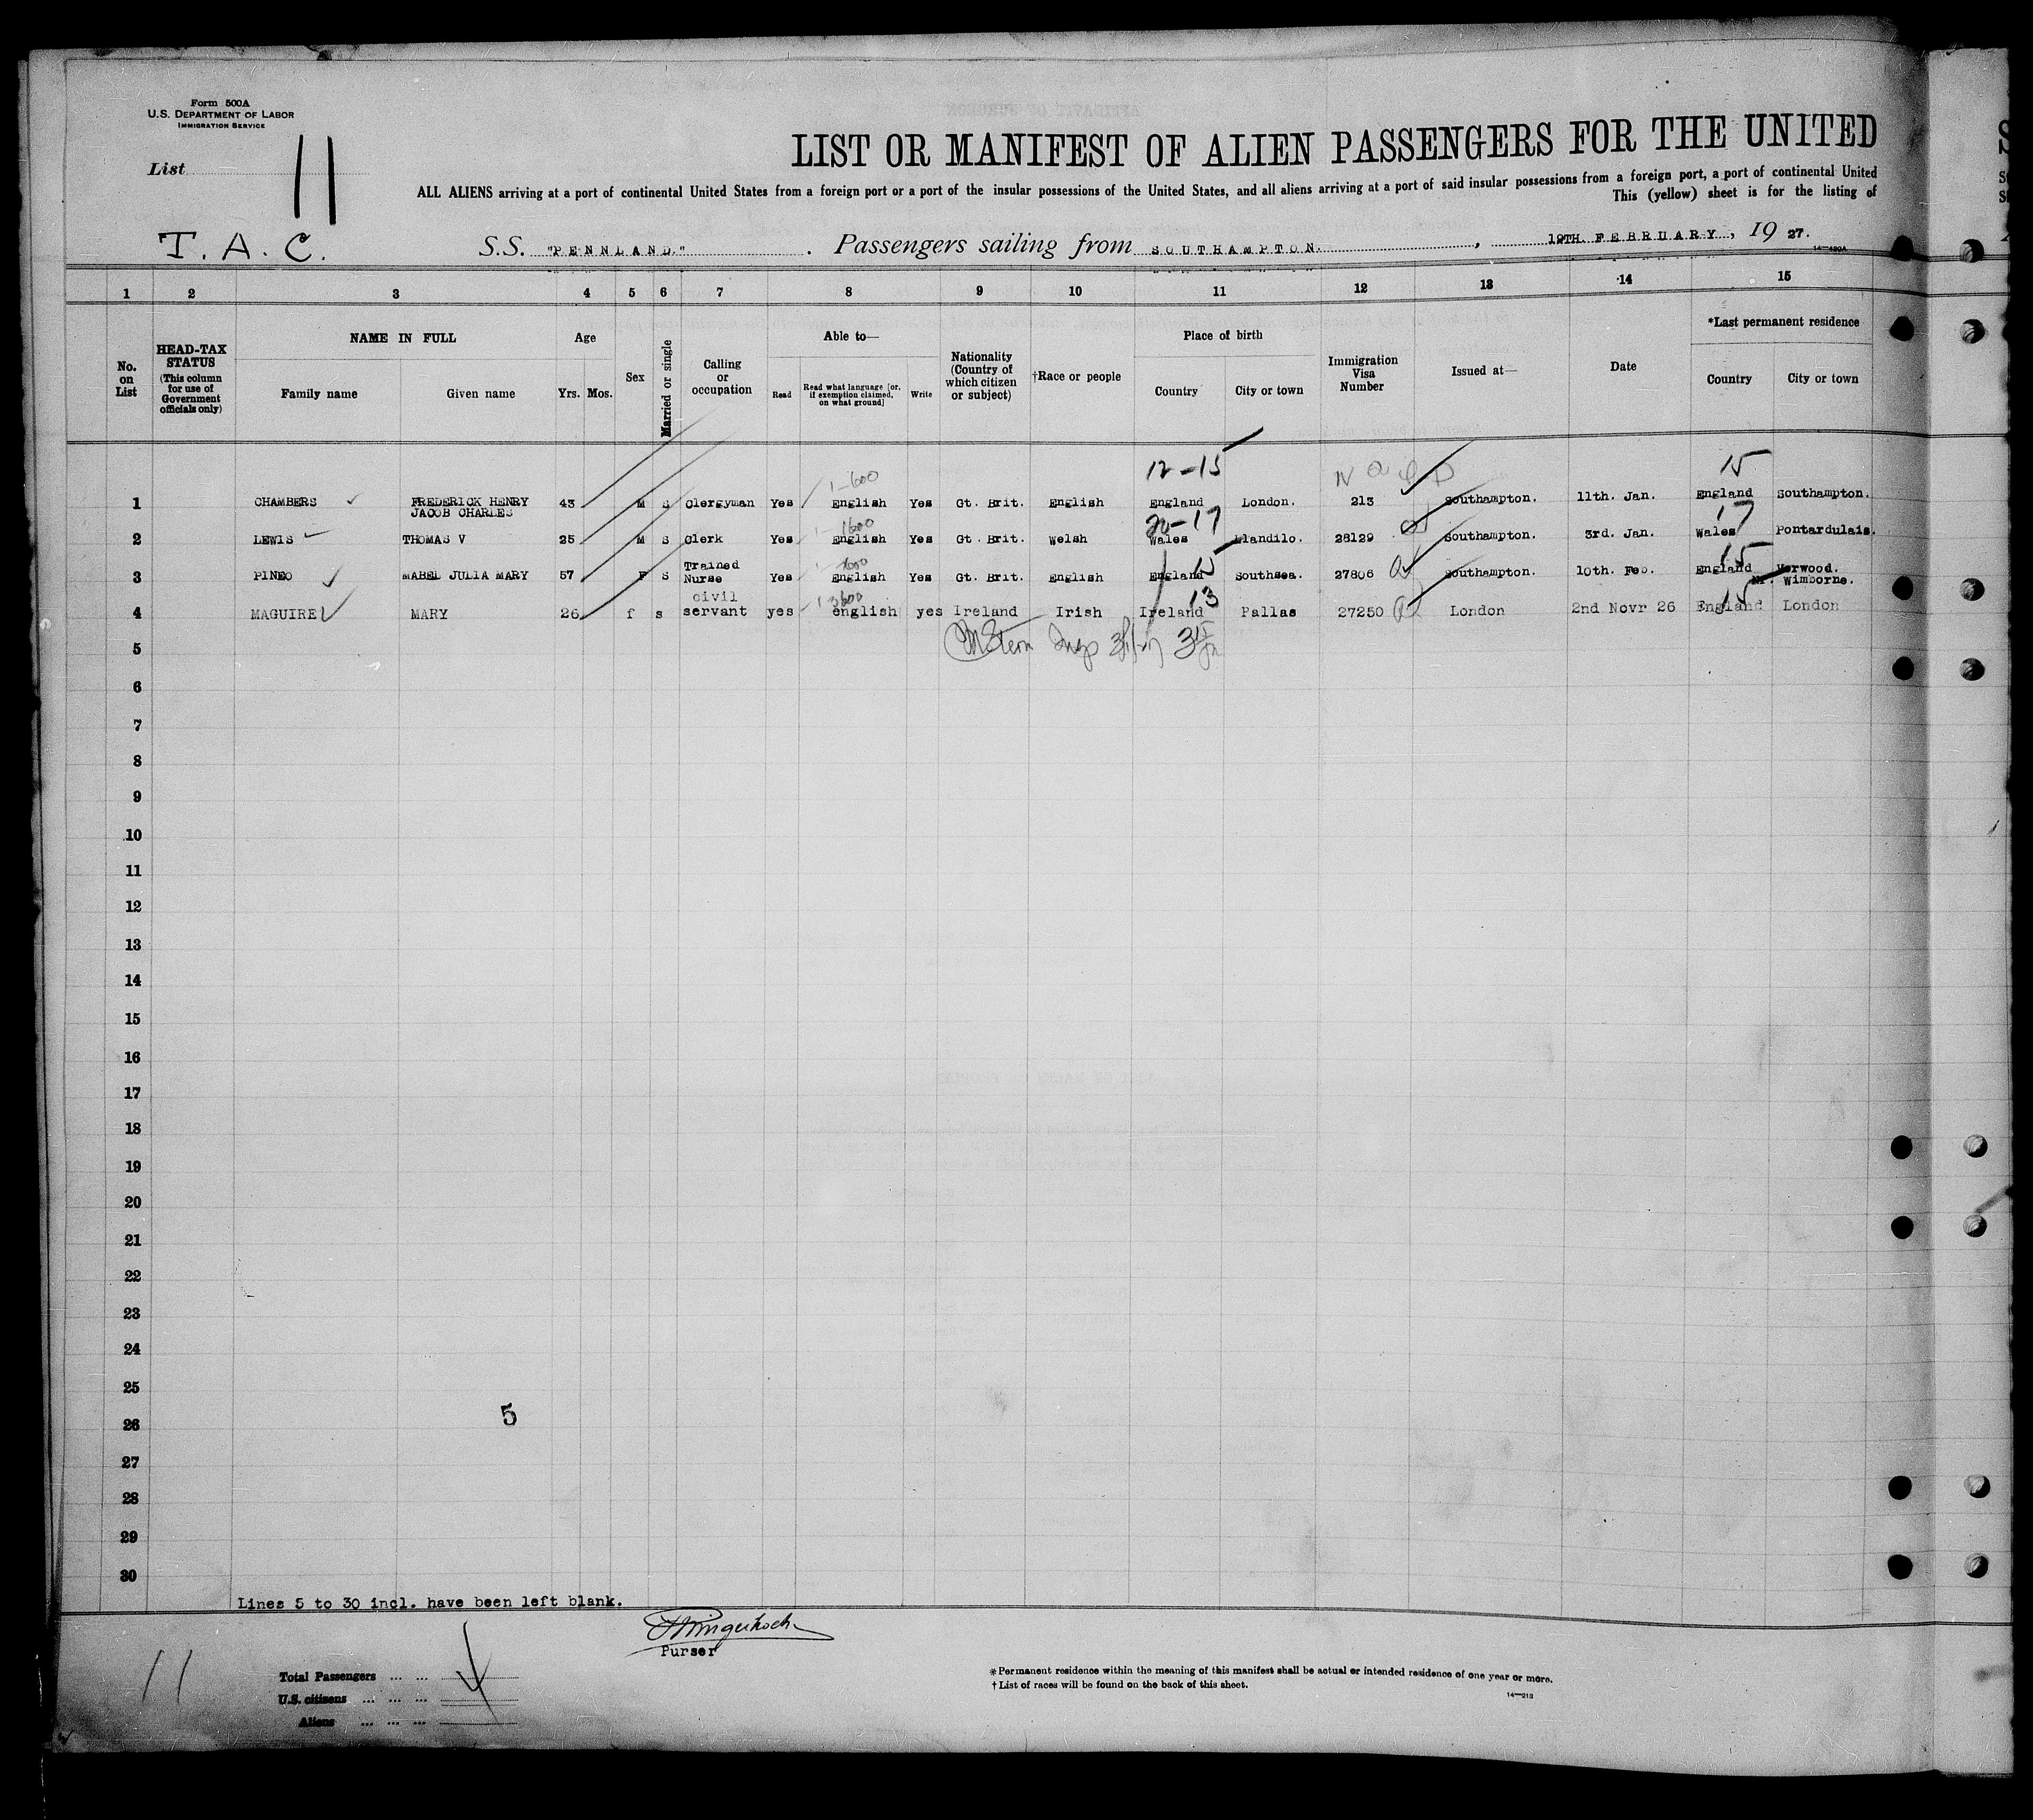 Form 500A
U.S. DEPARTMENT OF LABOR
IMMIGRATION SERVICE
List 11
LIST OR MANIFEST OF ALIEN PASSENGERS FOR THE UNITED
ALL ALIENS arriving at a port of continental United States from a foreign port or a port of the insular possessions of the United States, and all aliens arriving at a port of said insular possessions from a foreign port, a port of continental United
This (yellow) sheet is for the listing of
T. A. C. S.S. "PENNLAND." Passengers sailing from SOUTHAMPTON. , 19TH. FEBRUARY, 19 27.
14—430A
1 2 3 4 5 6 7 8 9 10 11 12 13 14 15
No. on List
HEAD-TAX STATUS (This column for use of Government officials only)
NAME IN FULL
Family name Given name
Age
Yrs. Mos.
Sex
Married or single
Calling or occupation
Able to—
Read Read what language [or, if exemption claimed, on what ground] Write
Nationality (Country of which citizen or subject)
†Race or people
Place of birth
Country City or town
Immigration Visa Number
Issued at—
Date
*Last permanent residence
Country City or town
12-15 15
1-600
1 CHAMBERS FREDERICK HENRY JACOB CHARLES 43 M S Clergyman Yes English Yes Gt. Brit. English England London. 213 Southampton. 11th. Jan. England Southampton.
1600 20-17 17
2 LEWIS THOMAS V 25 M S Clerk Yes English Yes Gt. Brit. Welsh Wales Llandilo. 28129 Southampton. 3rd. Jan. Wales Pontardulais.
15 15
3 PINEO MABEL JULIA MARY 57 F S Trained Nurse Yes English Yes Gt. Brit. English England Southsea. 27806 Southampton. 10th. Feb. England Verwood. Nr. Wimborne.
13 15
4 MAGUIRE MARY 26 f s civil servant yes english yes Ireland Irish Ireland Pallas 27250 London 2nd Novr 26 England London
5
6
7
8
9
10
11
12
13
14
15
16
17
18
19
20
21
22
23
24
25
5
26
27
28
29
30
Lines 5 to 30 incl. have been left blank.
Purser
11
Total Passengers ... ... 4
U.S. citizens ... ... ...
Aliens ... ... ...
*Permanent residence within the meaning of this manifest shall be actual or intended residence of one year or more.
†List of races will be found on the back of this sheet.
14—213